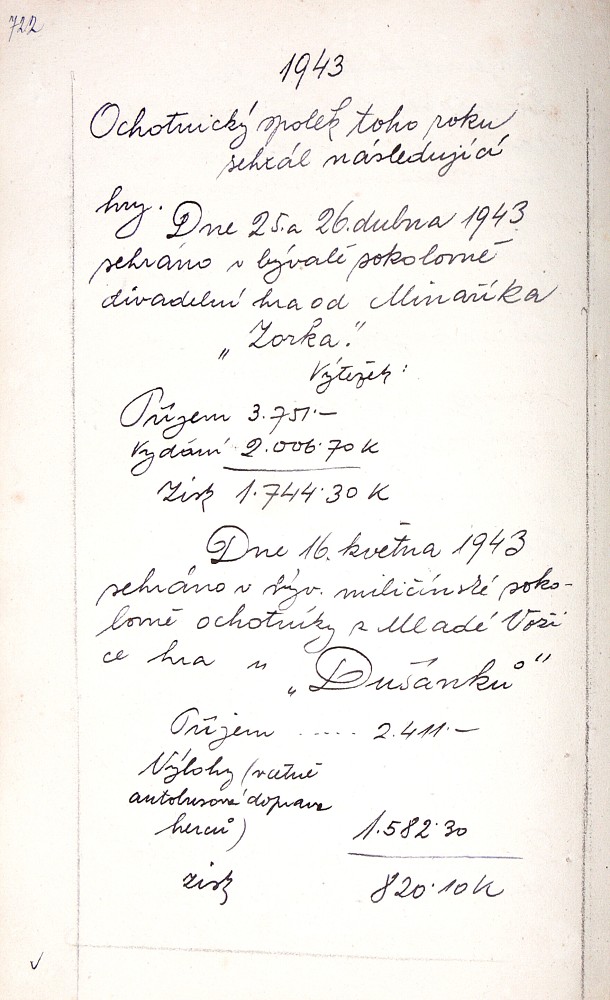 722
1943
Ochotnický spolek toho roku
sehrál následující
hry. Dne 25. a 26. dubna 1943
sehráno v bývalé sokolovně
divadelní hra od Minaříka
„Zorka."
Výtěžek:
Příjem 3.751·—
Vydání 2.006·70 K
Zisk 1.744·30 K
Dne 16. května 1943
sehráno v býv. miličínské soko-
lovně ochotníky z Mladé Voži
ce hra u „Dušánků"
Příjem ..... 2.411·—
Výlohy (včetně
autobusové dopravy
herců) 1.582·30
zisk 820·10 K